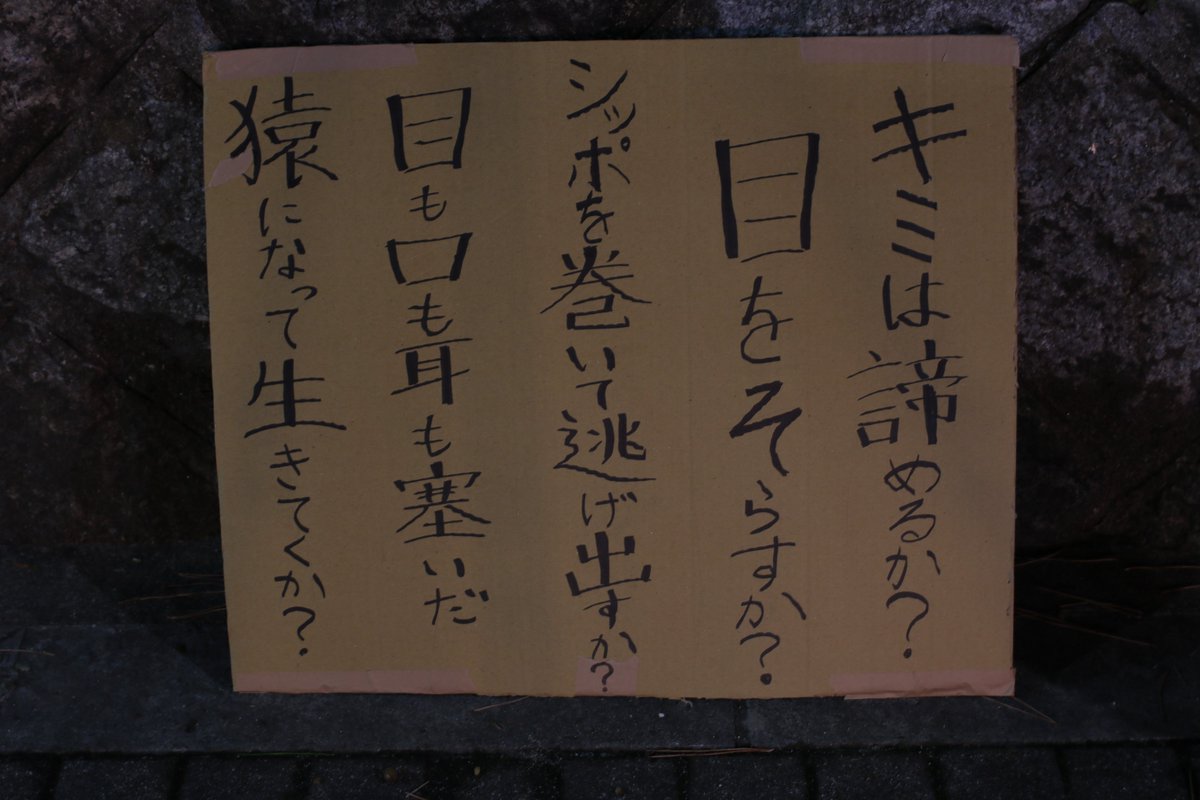 キミは諦めるか?
目をそらすか?
シッポを巻いて逃げ出すか?
目も口も耳も塞いだ
猿になって生きてくか?